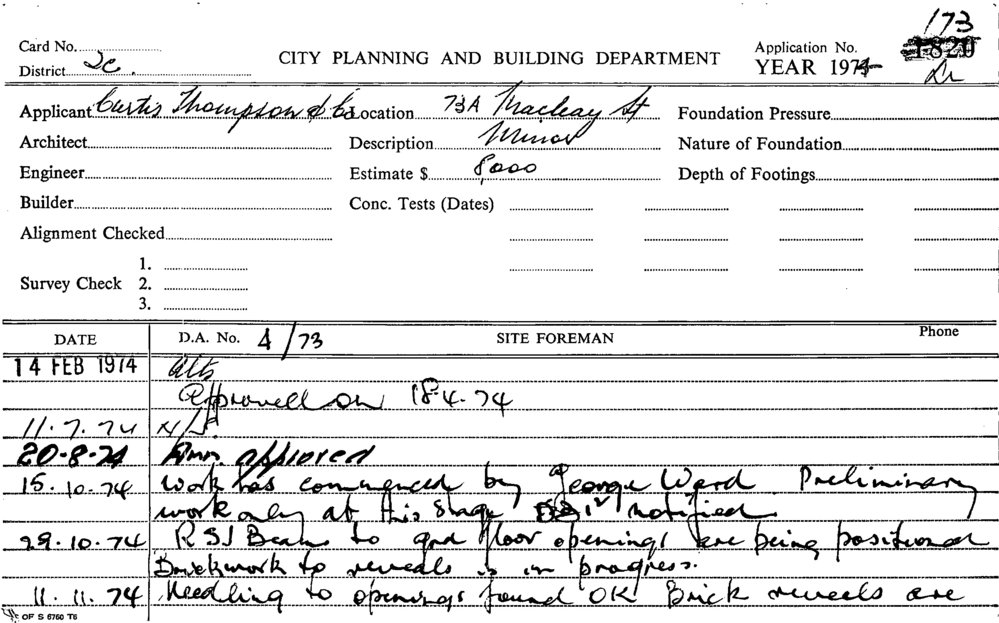 173
Card No.
District 2c.
CITY PLANNING AND BUILDING DEPARTMENT
Application No. 1820
YEAR 1974
Applicant Curtis Thompson & Co Location 73A Macleay St Foundation Pressure
Architect Description Minor Nature of Foundation
Engineer Estimate $ 8,000 Depth of Footings
Builder Conc. Tests (Dates)
Alignment Checked
1.
Survey Check 2.
3.
DATE D.A. No. 4/73 SITE FOREMAN Phone
14 FEB 1974 Alts
Approved on 18.4.74
11.7.74 N/S
20-8-74 Amn. approved
15.10.74 Work has commenced by George Ward Preliminary
work only at this stage notified
29.10.74 RSJ Beams to gnd floor openings are being positioned
Brickwork to reveals is in progress.
11.11.74 Needling to openings found OK Brick reveals are
OF S 6760 T6